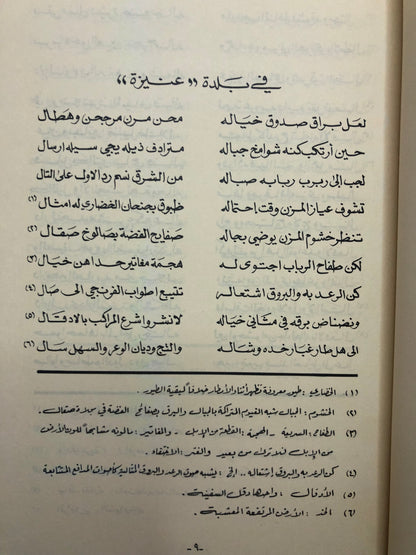 في بلدة "عنيزة"
لعل براق صدوق خياله محن مزن مرجحن وهطال
حين أرتكب كنه شوامخ جباله مترادف ذيله يجي سيله ارسال
لجب الى ربرب ربابه صباله من الشرق نسم رد الاول على التال
تشوف عياز المزن وقت احتماله طبوق بجنحان الخضاري له امثال (١)
تنظر خشوم المزن يوضي بجاله صفايح الفضة بصالوخ صقال (٢)
لكن طفاح الرباب اجتوى له هجمة مغاتير حداهن خيال (٣)
كن الرعد به والبروق اشتعاله تقنيع اطواب الفرنجي الى صال (٤)
ونضناض برقه في مثاني خياله لا نشروا شرع المراكب بالادقال (٥)
الى هل طار غبار خده وشاله والتج وديان الوعر والسهل سال (٦)
(١) الخضاري: طيور معروفة تظهر أثناء الأمطار خلافاً لبقية الطيور.
(٢) الخشوم: الجبال شبه الغيوم المتراكمة بالجبال والبرق بصفائح الفضة في سجلاة صقال.
(٣) الطفاح: السحب - الهجمة: القطعة من الابل - والمغاتير: مالونه مشابها للون الأرض
من الابل بعير والفتر: الاختفاء.
(٤) كن الرعد به والبروق اشتعاله.. الخ: يشبه صوت الرعد والبروق المتتالية كأصوات المدافع المتتابعة
(٥) الأدقال: واحدها دقل السفينة.
(٦) الخد: الأرض المرتفعة المعشبة.
-٩-